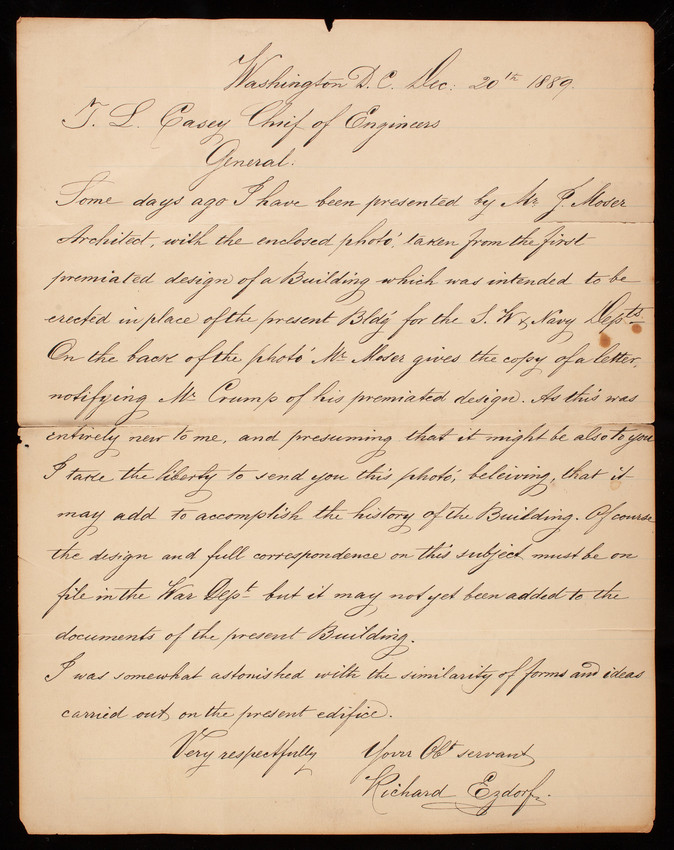 Washington D. C. Dec: 20th 1889.
T. L. Casey Chief of Engineers
General.
Some days ago I have been presented by Mr. J. Moser
Architect, with the enclosed photo', taken from the first
premiated design of a Building which was intended to be
erected in place of the present Bldg for the S. W & Navy Depts.
On the back of the photo' Mr. Moser gives the copy of a letter,
notifying Mr Crump of his premiated design. As this was
entirely new to me, and presuming that it might be also to you
I take the liberty to send you this photo', beleiving, that it
may add to accomplish the history of the Building. Of course
the design and full correspondence on this subject must be on
file in the War Dept. but it may not yet been added to the
documents of the present Building.
I was somewhat astonished with the similarity of forms and ideas
carried out on the present edifice.
Very respectfully Your Obt servant
Richard Ezdorf.